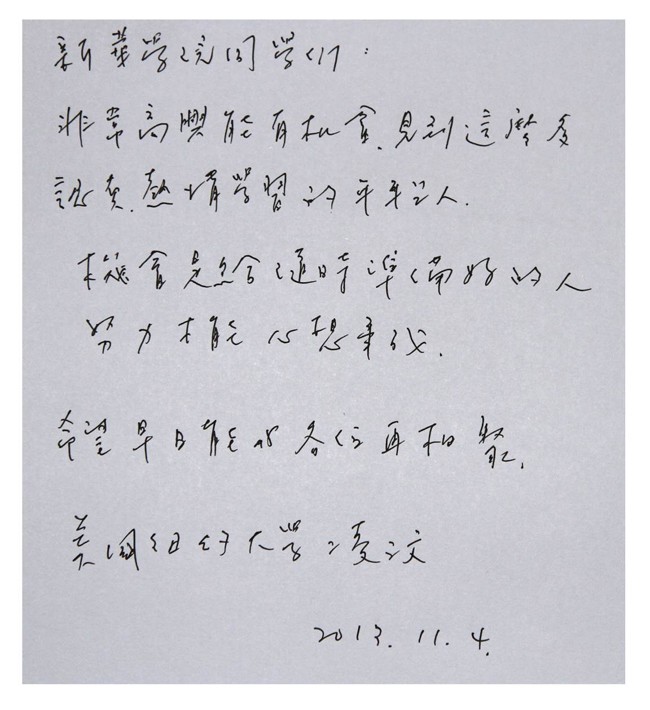 新華學院同學們:
非常高興能有机會,見到這麼多
認真,熱情學習的年輕人.
機會是給隨時準備好的人
努力才能心想事成.
希望早日能與各位再相聚.
美國紐約大學凌文
2013.11.4.